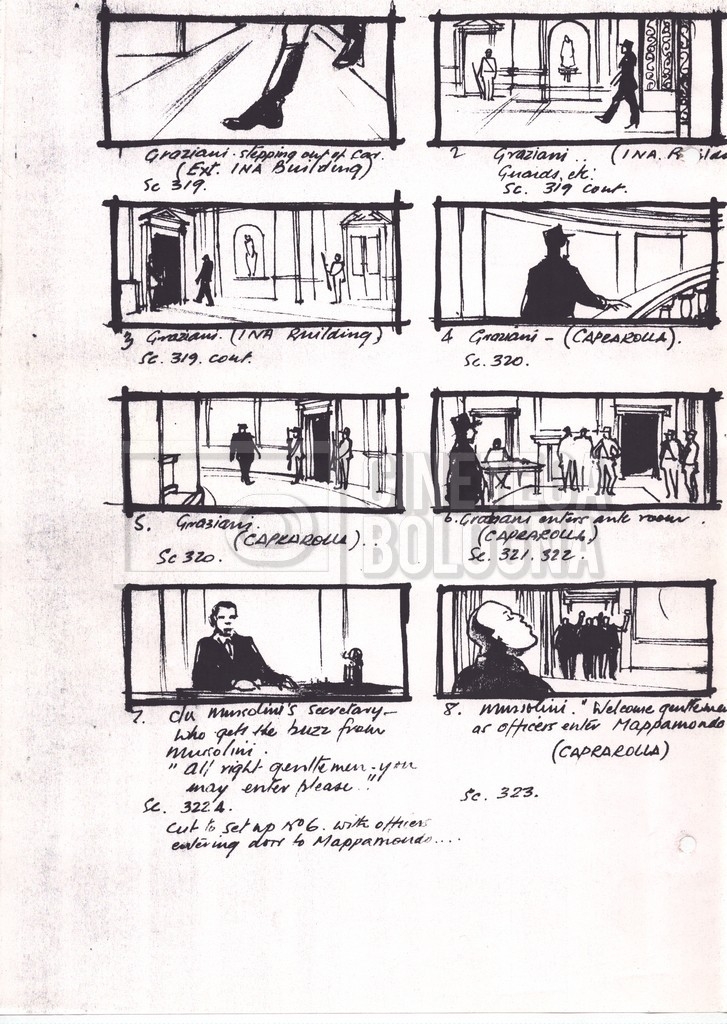 1 Graziani - stepping out of car.
(Ext. INA Building)
Sc 319.
2 Graziani .. (INA. B
Guards, etc.
Sc. 319 cont.
3 Graziani. (INA Building)
Sc. 319. cont.
4 Graziani - (CAPRAROLLA).
Sc. 320.
5. Graziani.
(CAPRAROLLA).
Sc 320.
6. Graziani enters ante room.
(CAPRAROLLA)
Sc. 321. 322.
CINETECA
BOLOGNA
7. c/u Mussolini's secretary -
who gets the buzz from
Mussolini.
"All right gentlemen - you
may enter please.."
Sc. 322A.
Cut to set up No 6. with officers
entering door to Mappamondo....
8. Mussolini. "Welcome gentlemen
as officers enter Mappamondo
(CAPRAROLLA)
Sc. 323.